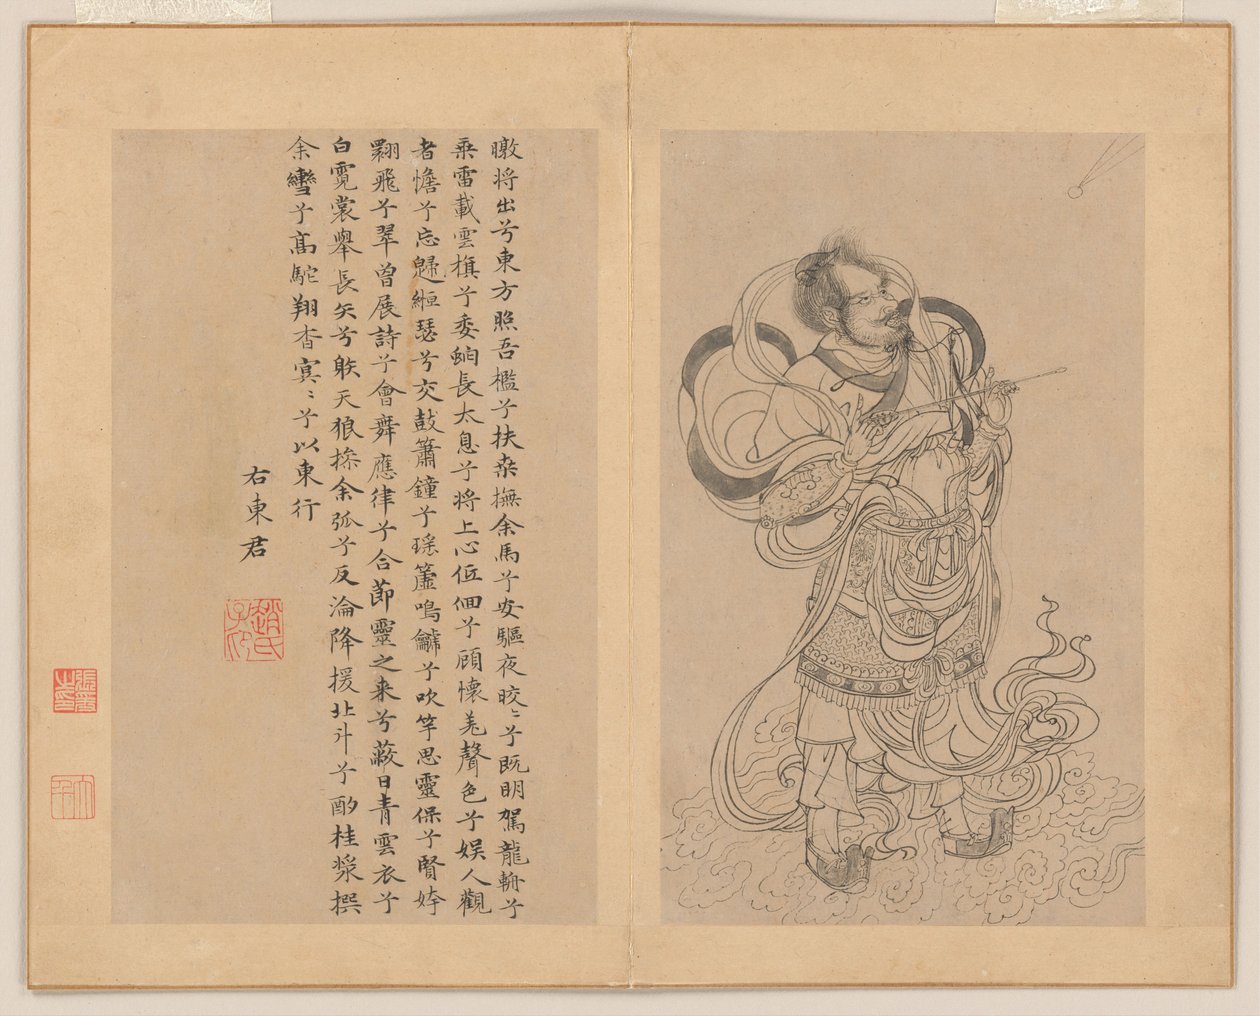 暾將出兮東方照吾檻兮扶桒撫余馬兮安驅夜晈〻兮既明駕龍輈兮
乘雷載雲旗兮委蛇長太息兮將上心低佪兮顧懷羗聲色兮娱人觀
者憺兮忘歸緪瑟兮交鼓簫鐘兮瑶簴鳴龥兮吹竽思靈保兮賢姱
翾飛兮翠曾展詩兮會舞應律兮合節靈之来兮蔽日青雲衣兮
白霓裳舉長矢兮䠶天狼摻余弧兮反淪降援北斗兮酌桂漿撰
余轡兮髙駝翔杳㝠〻兮以東行
右東君
趙氏子昂